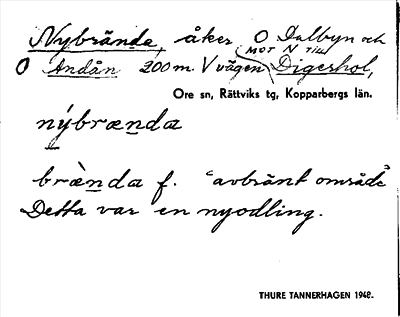 Nybrända, åker O Dalbyn och
MOT N TILL
O Andån 200 m. V vägen Digerhol,
Ore sn, Rättviks tg, Kopparbergs län.
nýbrænda
brènda f. "avbränt område"
Detta var en nyodling.
THURE TANNERHAGEN 1948.